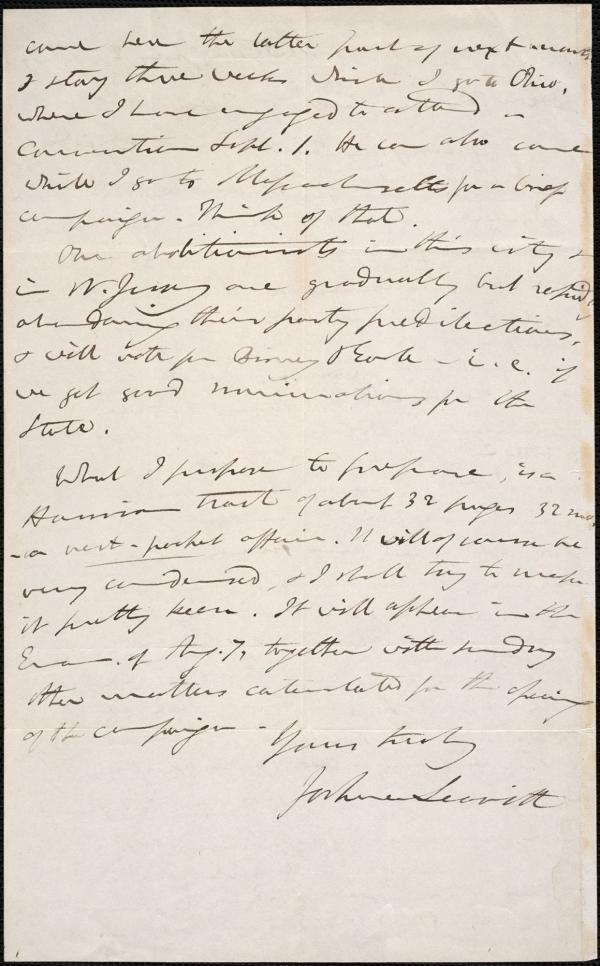 come here the latter part of next month
& stay three weeks while I go to Ohio,
where I have engaged to attend a
Convention Sept. 1. He can also come
while I go to Massachusetts for a brief
campaign. Think of that.
Our abolitionists in this city &
in N. Jersey are gradually but rapidly
abandoning their party predilections,
& will vote for Birney & Earle - i.e. if
we get good nominations for the
State.
What I propose to prepare, is a
Harrison tract of about 32 pages 32 mo,
- a vest-pocket affair. It will of course be
very condensed, & I shall try to make
it pretty keen. It will appear in the
Eman. of Aug. 7, together with sundry
other matters calculated for the opening
of the campaign -
Yours truly
Joshua Leavitt